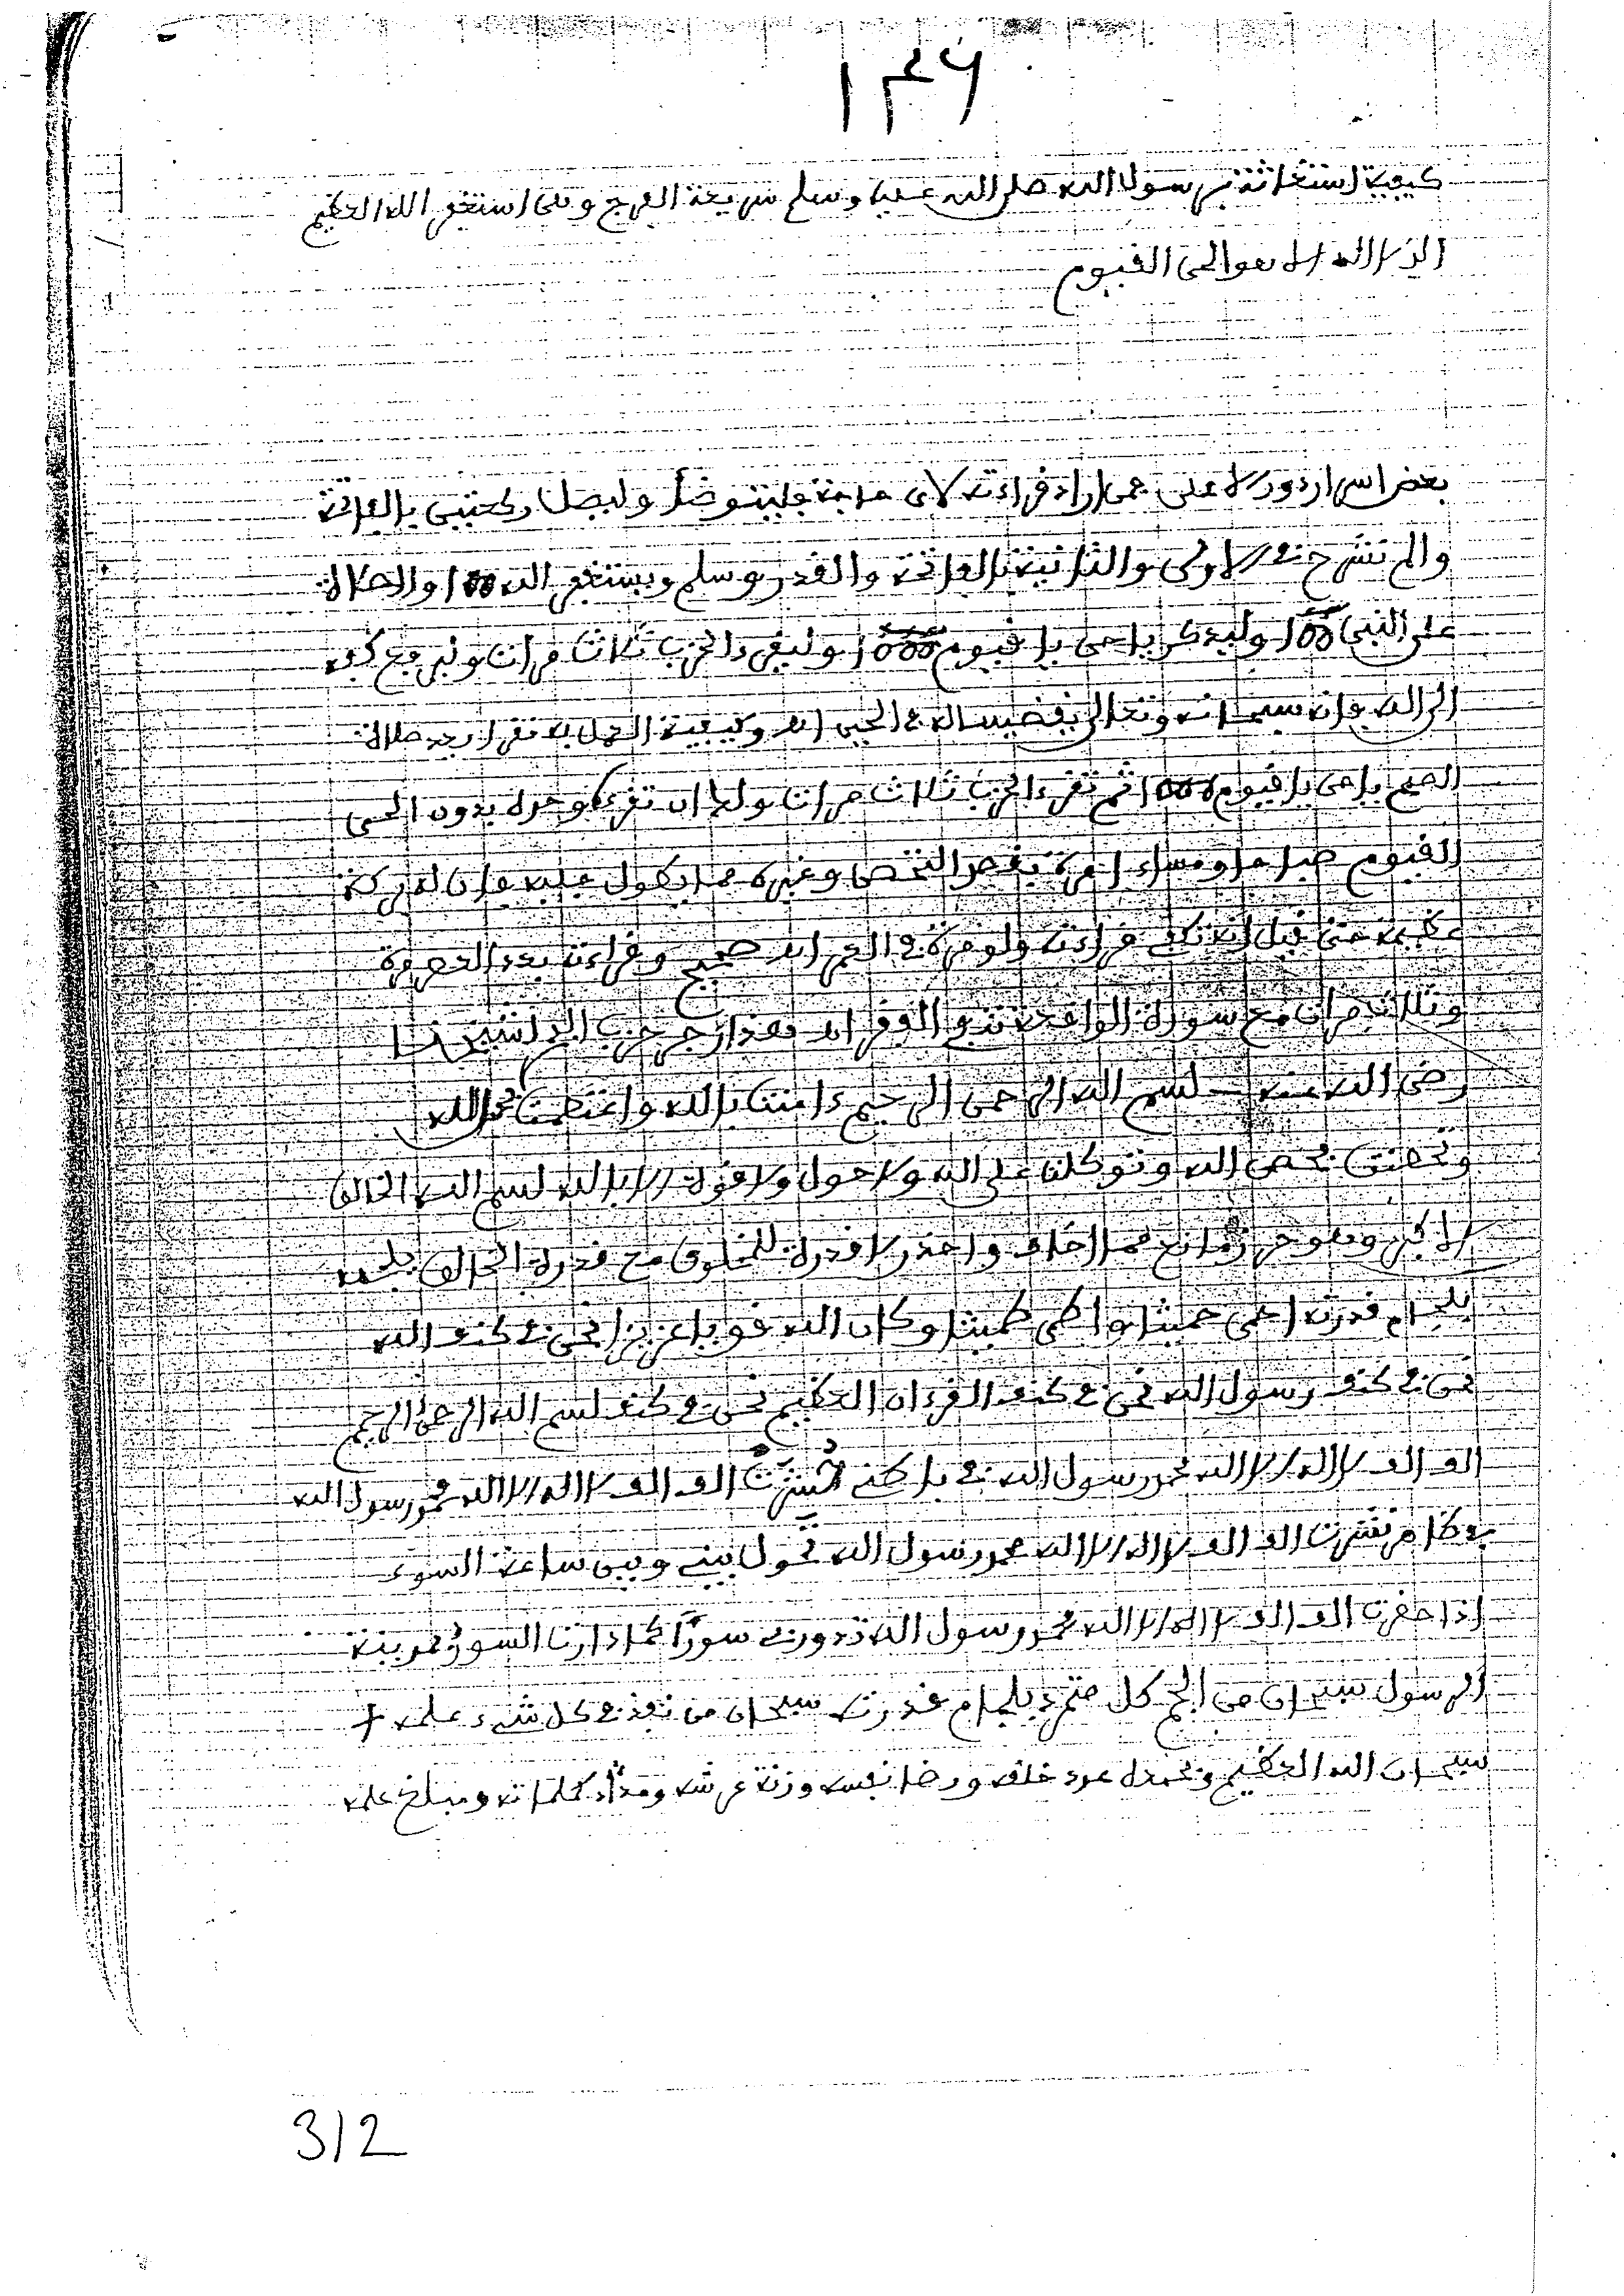 ١٣٦
كيفية استغاثة برسول الله صلى الله عليه وسلم سريعة الفرج وهي استغفر الله العظيم
الذي لا اله الا هو الحي القيوم
بعض اسرار دور الاعلى فمن اراد قراءته لاي حاجة فليتوضأ وليصل ركعتين بالفاتحة
والم نشرح في الاولى والثانية بالفاتحة والقدر وسلم ويستغفر الله 100 والصلاة
على النبي 100 وليذكر يا حي يا قيوم 1000 وليقرء الحزب ثلاث مرات وليرفع كفه
الى الله فانه سبحانه وتعالى يقضيها له في الحين اه وكيفية العمل به تقرا بعد صلاة
الصبح يا حي يا قيوم 1000 ثم تقرء الحزب ثلاث مرات ولك ان تقرءه وحده بدون الحي
القيوم صباحا ومساء مرة بقصد التحصن وغيره مما يطول جلبه فان له بركة
عظيمة حتى قيل انه تكفي قراءته ولو مرة في العمر اه صحيح وقراءته بعد العصر مرة
وثلاث مرات مع سورة الواقعة تنفي الفقر اه هذا حزب الد شيخنا
رضي الله عنه بسم الله الرحمن الرحيم ءامنت بالله واعتصمت بالله
وتحصنت بحصن الله وتوكلت على الله ولا حول ولا قوة الا بالله بسم الله الخالق
الاكبر وهو حرز مانع مما اخاف واحذر لا قدرة للمخلوق مع قدرة الخالق يلجمه
بلجام قدرته احمى حميثا واطمى طميثا وكان الله قويا عزيزا نحن في كنف الله
نحن في كنف رسول الله نحن في كنف القرءان العظيم نحن في كنف بسم الله الرحمن الرحيم
الف الف لا اله الا الله محمد رسول الله في باطني حُشرت الف الف لا اله الا الله محمد رسول الله
في ظاهري نشرت الف الف لا اله الا الله محمد رسول الله تحول بيني وبين ساعة السوء
اذا حضرت الف الف لا اله الا الله محمد رسول الله تدور بي سورًا كما دارت السور بمدينة
الرسول سبحان من الجم كل متمرد بلجام قدرته سبحان من نفذ في كل شيء علمه
سبحان الله العظيم وبحمده عدد خلقه ورضا نفسه وزنة عرشه ومداد كلماته ومبلغ علمه
312